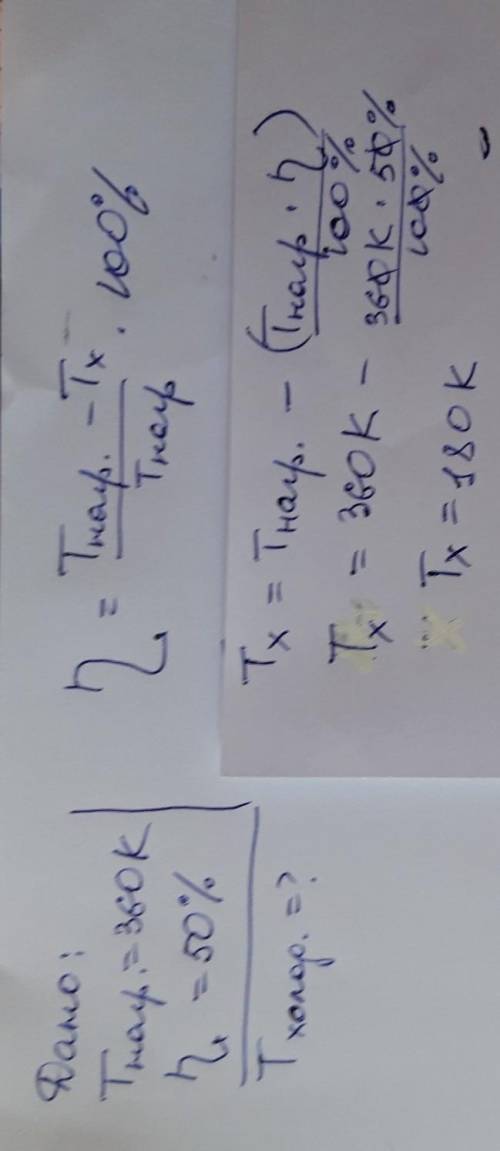 Дано:
Tнагр. = 360K
η = 50%
Tхолод. = ?
η = (Tнагр. - Tx) / Tнагр · 100%
Tx = Tнагр. - (Tнагр. · η) / 100%
Tx = 360K - 360K · 50% / 100%
Tx = 180K